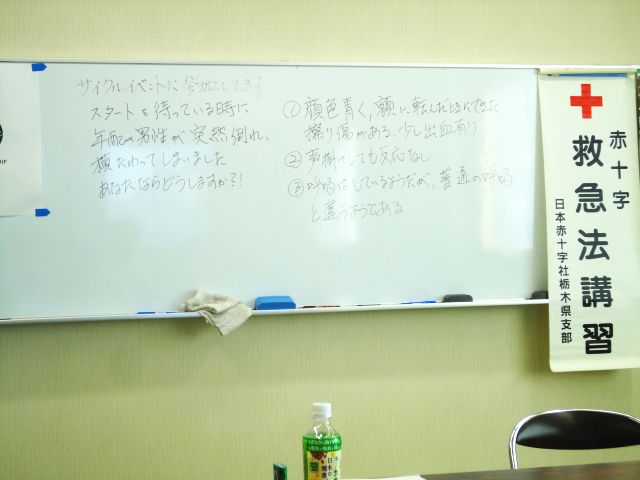 サイクルイベントに参加してます
スタートを待っている時に
年配の男性が突然倒れ、
横たわってしまいました
あなたならどうしますか?!
① 顔色青く、額に転んだときにできた
擦り傷がある。少し出血有り
② 声掛けしても反応なし
③ 呼吸はしているようだが、普通の呼吸
と違うようである
赤十字
救急法講習
日本赤十字社栃木県支部
UP
日本の
健康